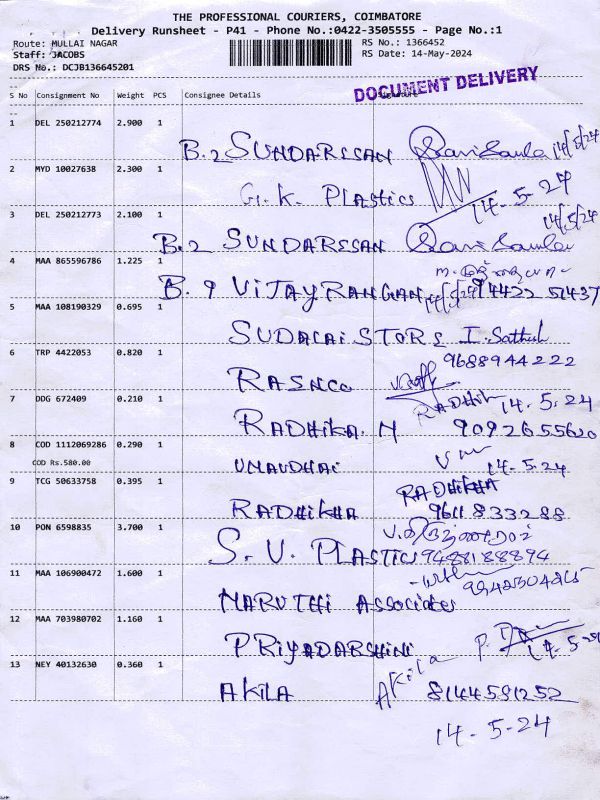 THE PROFESSIONAL COURIERS, COIMBATORE
Delivery Runsheet - P41 - Phone No.:0422-3505555 - Page No.:1
Route: MULLAI NAGAR RS No.: 1366452
Staff: JACOBS RS Date: 14-May-2024
DRS No.: DCJB136645201
DOCUMENT DELIVERY
S No Consignment No Weight PCS Consignee Details
1 DEL 250212774 2.900 1 B.2 SUNDARESAN 14/5/24
2 MYD 10027638 2.300 1 G.K. Plastics 14-5-24
3 DEL 250212773 2.100 1 B.2 SUNDARESAN 14/5/24
4 MAA 865596786 1.225 1 B.9 VIJAYRANGAN 14/5/24 94422 51437
5 MAA 108190329 0.695 1 SUDALAI STORE I. Sathish
9688944222
6 TRP 4422053 0.820 1 RASNCO
7 DDG 672409 0.210 1 RADHIKA. N RADHIK 14.5.24
9092655620
8 COD 1112069286 0.290 1 UNAVDHAI 14-5-24
COD Rs.580.00
9 TCG 50633758 0.395 1 RADHIKHA RADHIKHA
9611833288
10 PON 6598835 3.700 1 S.V. PLASTIC 9488188894
11 MAA 106900472 1.600 1 MARUTHI Associates
12 MAA 703980702 1.160 1 PRIYADARSHINI
13 NEY 40132630 0.360 1 AKILA Akila 8144581252
14-5-24